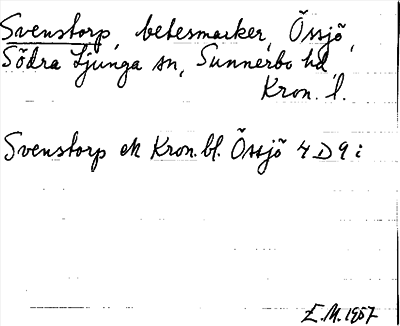 Svenstorp, betesmarker, Össjö,
Södra Ljunga sn, Sunnerbo hd,
Kron. l.
Svenstorp ek Kron. bl. Össjö 4 D 9 i
E.M. 1957